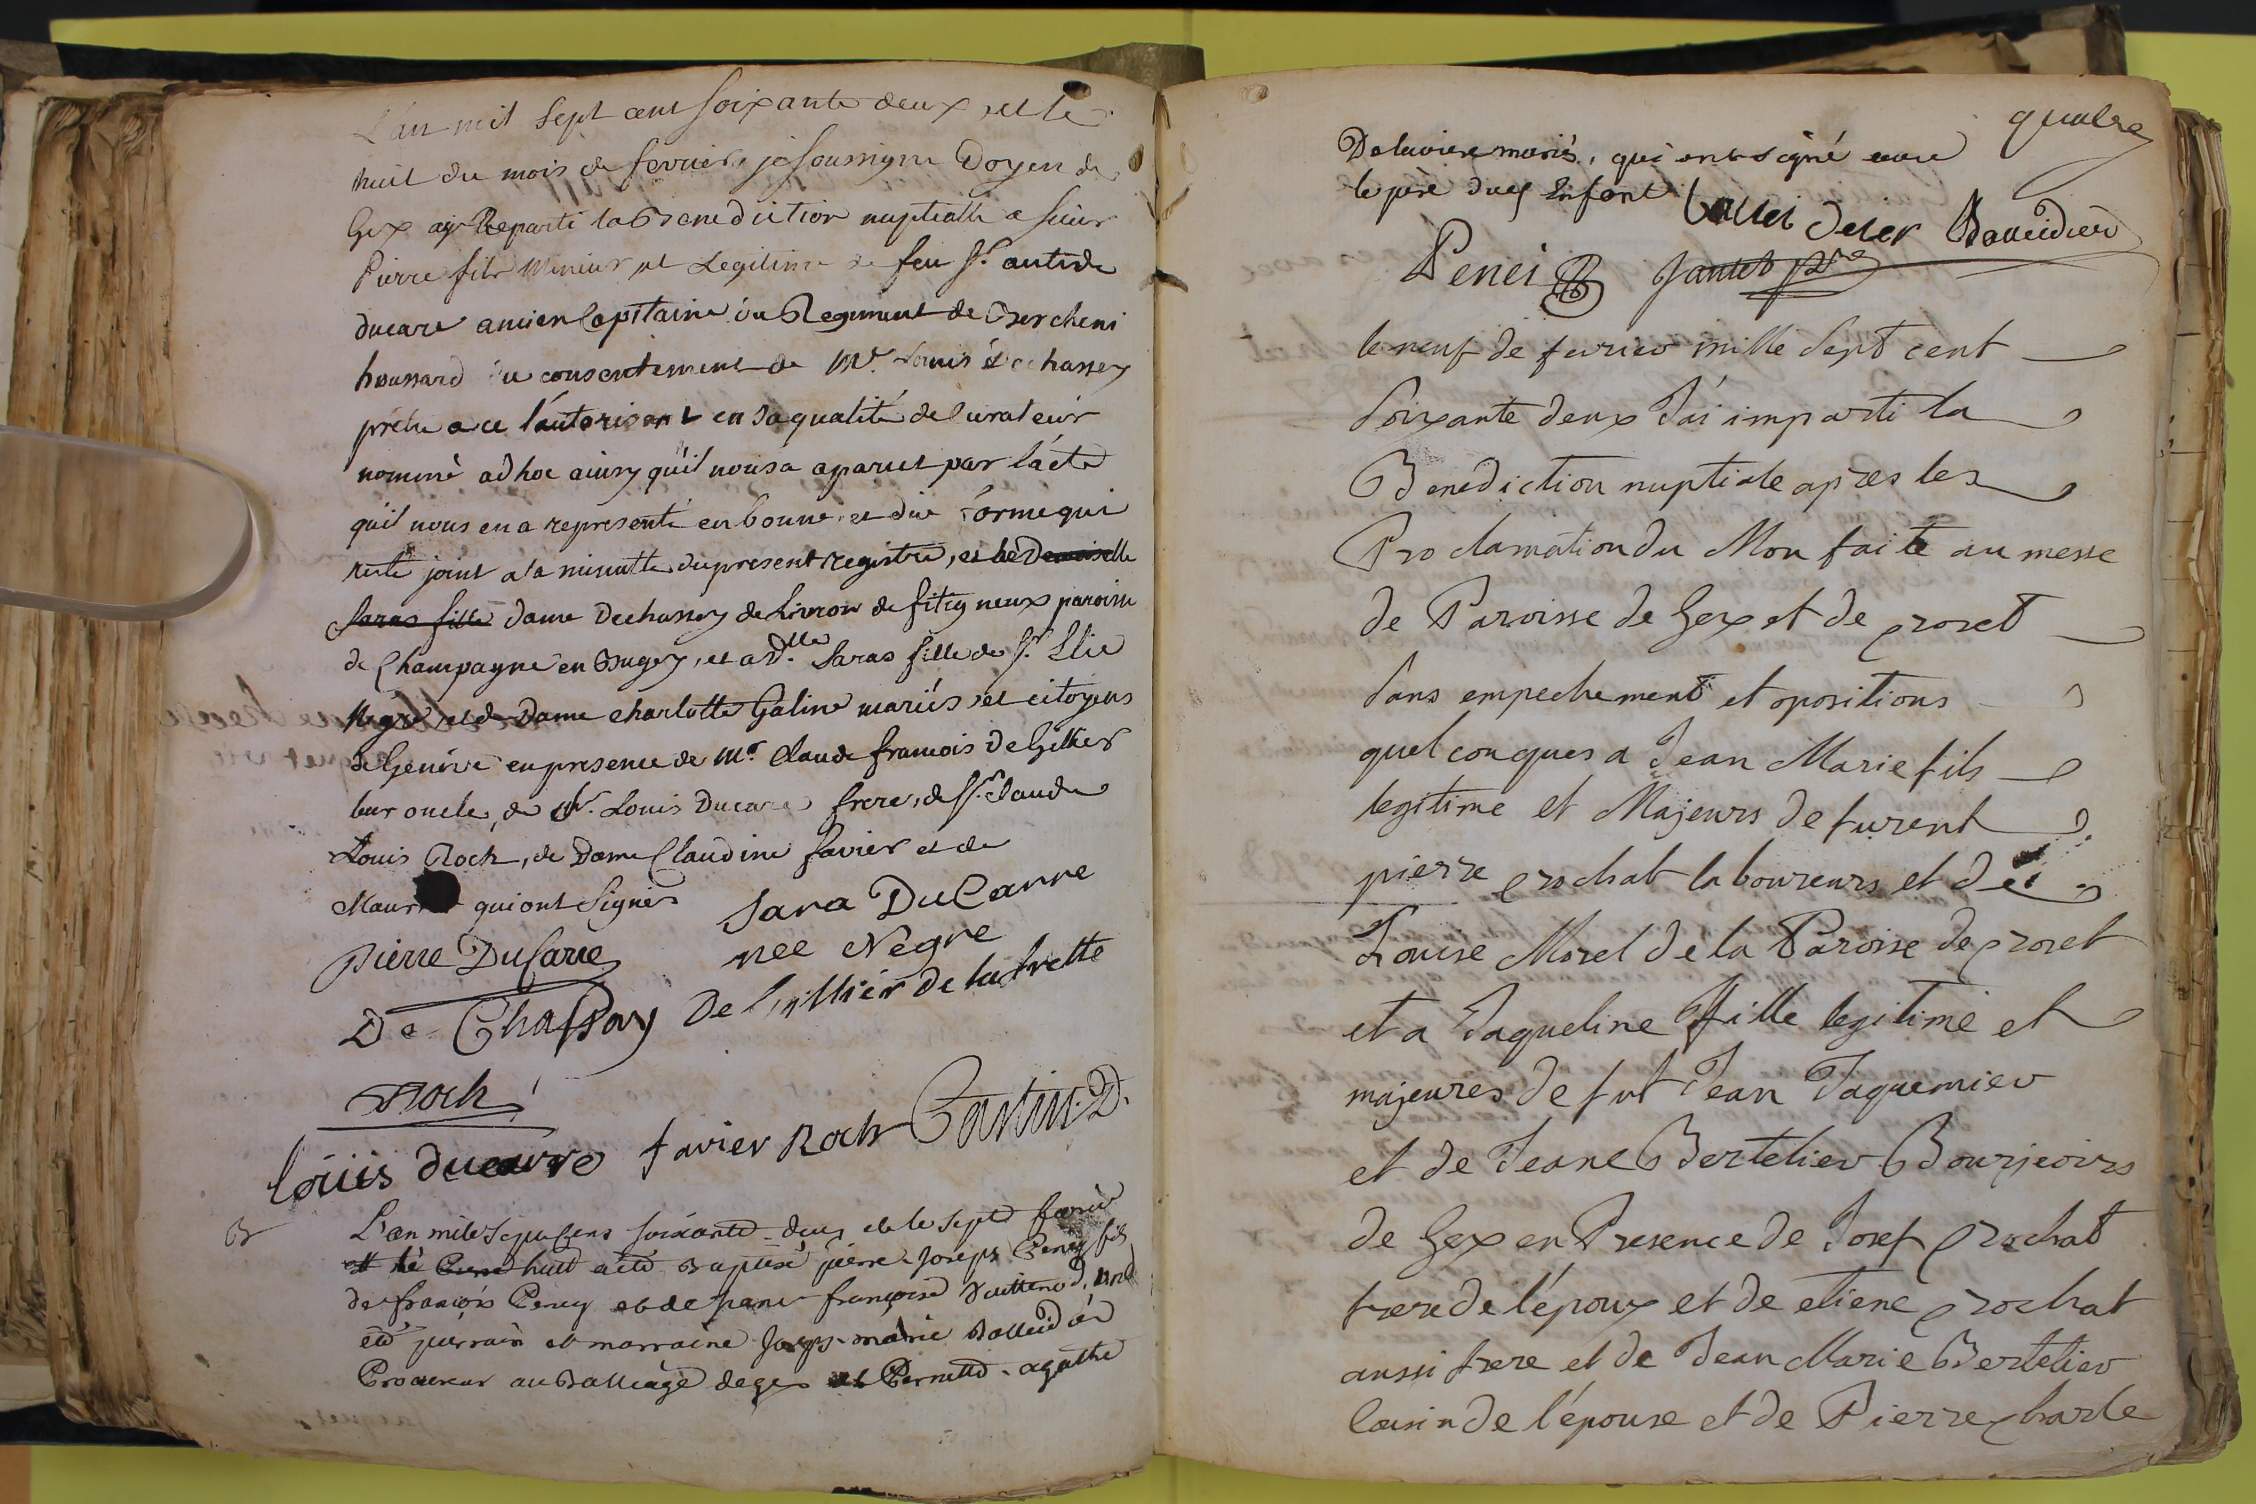 L'an mil sept cent soixante deux et le
huit du mois de fevrier je soussigne Doyen de
Gex ay Reparti la Benediction nuptialle a sieur
Pierre fils Mineur et Legitime de feu Sr. antide
ducare ancien Capitaine du Regiment de Bercheni
houssard du consentement de Mr. Louis dechassey
prêtre a ce l'autorisant en sa qualité de Curateur
nommé ad hoc ainsy qu'il nous a aparut par l'acte
qu'il nous en a representé en bonne et due forme qui
reste joint a la minutte du present registre, et de Demoiselle
Saras fille dame Dechassey de Livron de fitigneux paroisse
de Champagne en Bugey, et a Dlle. Saras fille de Sr. Elie
Negre et de Dame charlotte Galine mariés et citoyens
de Genève en presence de Mr. Claude francois De Gillier
leur oncle, de Mr. Louis Ducare frere, de Sr. claude
Louis Roch, de Dame Claudine favier et de
Maur qui ont Signés
Sara DuCarre
Pierre DuCarre
nee Nègre
De Chassay De Gillier de la frette
Roch
Loüis ducarre favier Roch Castin. D.
B
L'an mile Sept Cens soixante deux et le sept fevrie
huit a été Baptisé pierre Joseph Peney fils
de françois Peney et de françoise
été parrain et marraine Joseph marie Balleidier
Procureur au Balliage de gex et Pernette agathe
quatre
Delaviere mariés, qui ont signé avec
le père dud Enfant
Balleidier
Penei Jantet ptre
le neuf de fevrier mille Sept cent
Soixante deux J'ai imparti la
Benediction nuptiale apres les
Proclamation du Mon faite au messe
de Paroisse de Gex et de crozet
sans empechement et opositions
quelconques a Jean Marie fils
legitime et Majeurs de furent
pierre crochat laboureurs et de
Louise Morel de la Paroise de crozet
et a Jaqueline fille legitime et
majeures de fut Jean Jaquemier
et de Jeane Bertelier Bourjeoirs
de Gex en Presence de Josef crochat
frere de l'époux et de etiene crochat
aussi frere et de Jean Marie Bertelier
Cousin de l'épouse et de Pierre charle